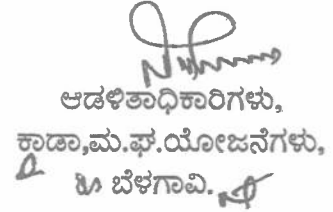 ಆಡಳಿತಾಧಿಕಾರಿಗಳು,
ಕಾಡಾ,ಮ.ಘ.ಯೋಜನೆಗಳು,
ಬೆಳಗಾವಿ.